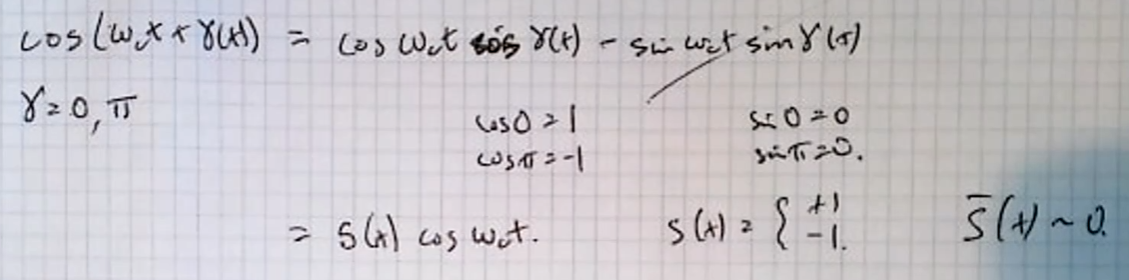 cos(ω_c t + γ(t)) = cos ω_c t cos γ(t) - sin ω_c t sin γ(t)
γ = 0, π
cos 0 = 1 sin 0 = 0
cos π = -1 sin π = 0.
= S(t) cos ω_c t. S(t) = { +1 -1. S̄(t) ~ 0.